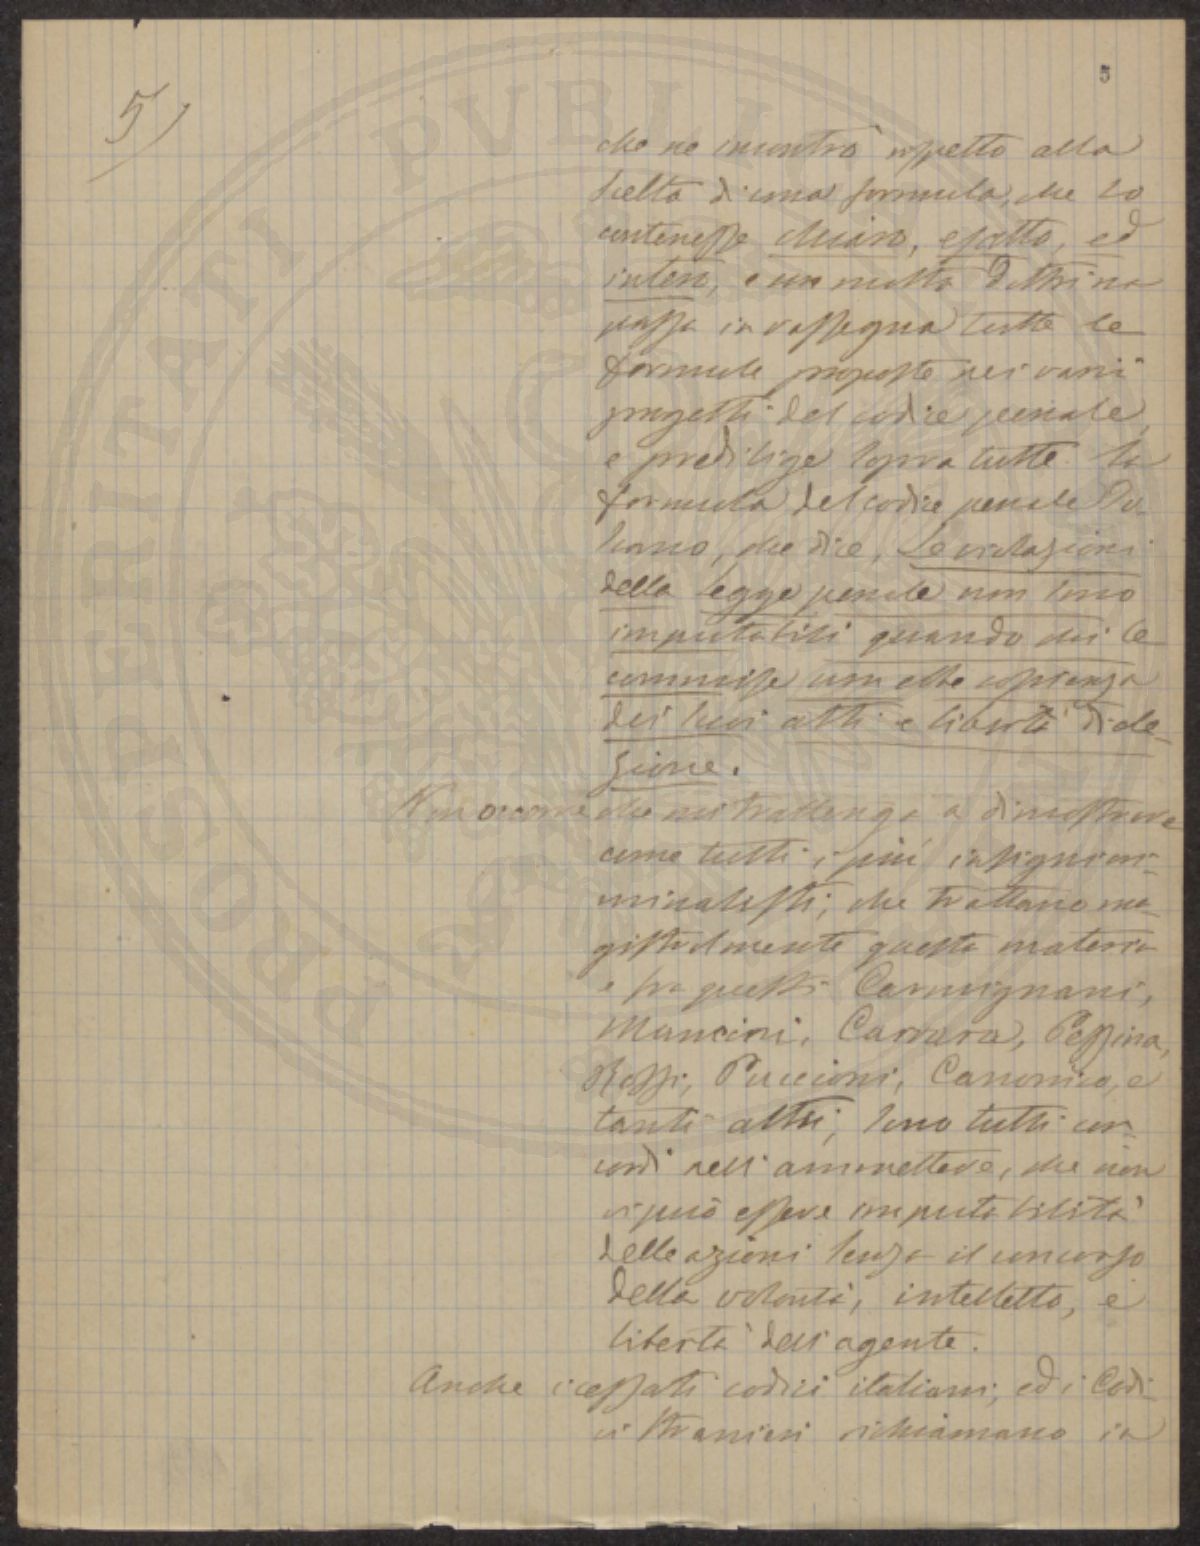 5
5)
che ne incontrò rispetto alla
scelta di una formula, che lo
contenesse chiaro, esatto, ed
intero, e con molta dottrina
passa in rassegna tutte le
formule proposte nei varii
progetti del codice penale,
e predilige sopra tutte la
formula del codice penale
che dice, Le violazioni
della legge penale non sono
imputabili quando chi le
commise non ebbe coscienza
dei suoi atti e libertà di ele-
zione.
Non occorre che mi trattenga a dimostrare
come tutti i più insigni cri-
minalisti, che trattano ma-
gistralmente questa materia
e fra questi Carmignani,
Mancini, Carrara, Pessina,
Rossi, Puccioni, Canonico, e
tanti altri, sono tutti con-
cordi nell'ammettere, che non
vi può essere imputabilità
delle azioni senza il concorso
della volontà, intelletto, e
libertà dell'agente.
Anche i cessati codici italiani, ed i Codi-
ci stranieri richiamano in
PROSPERITATI PVBLICAE